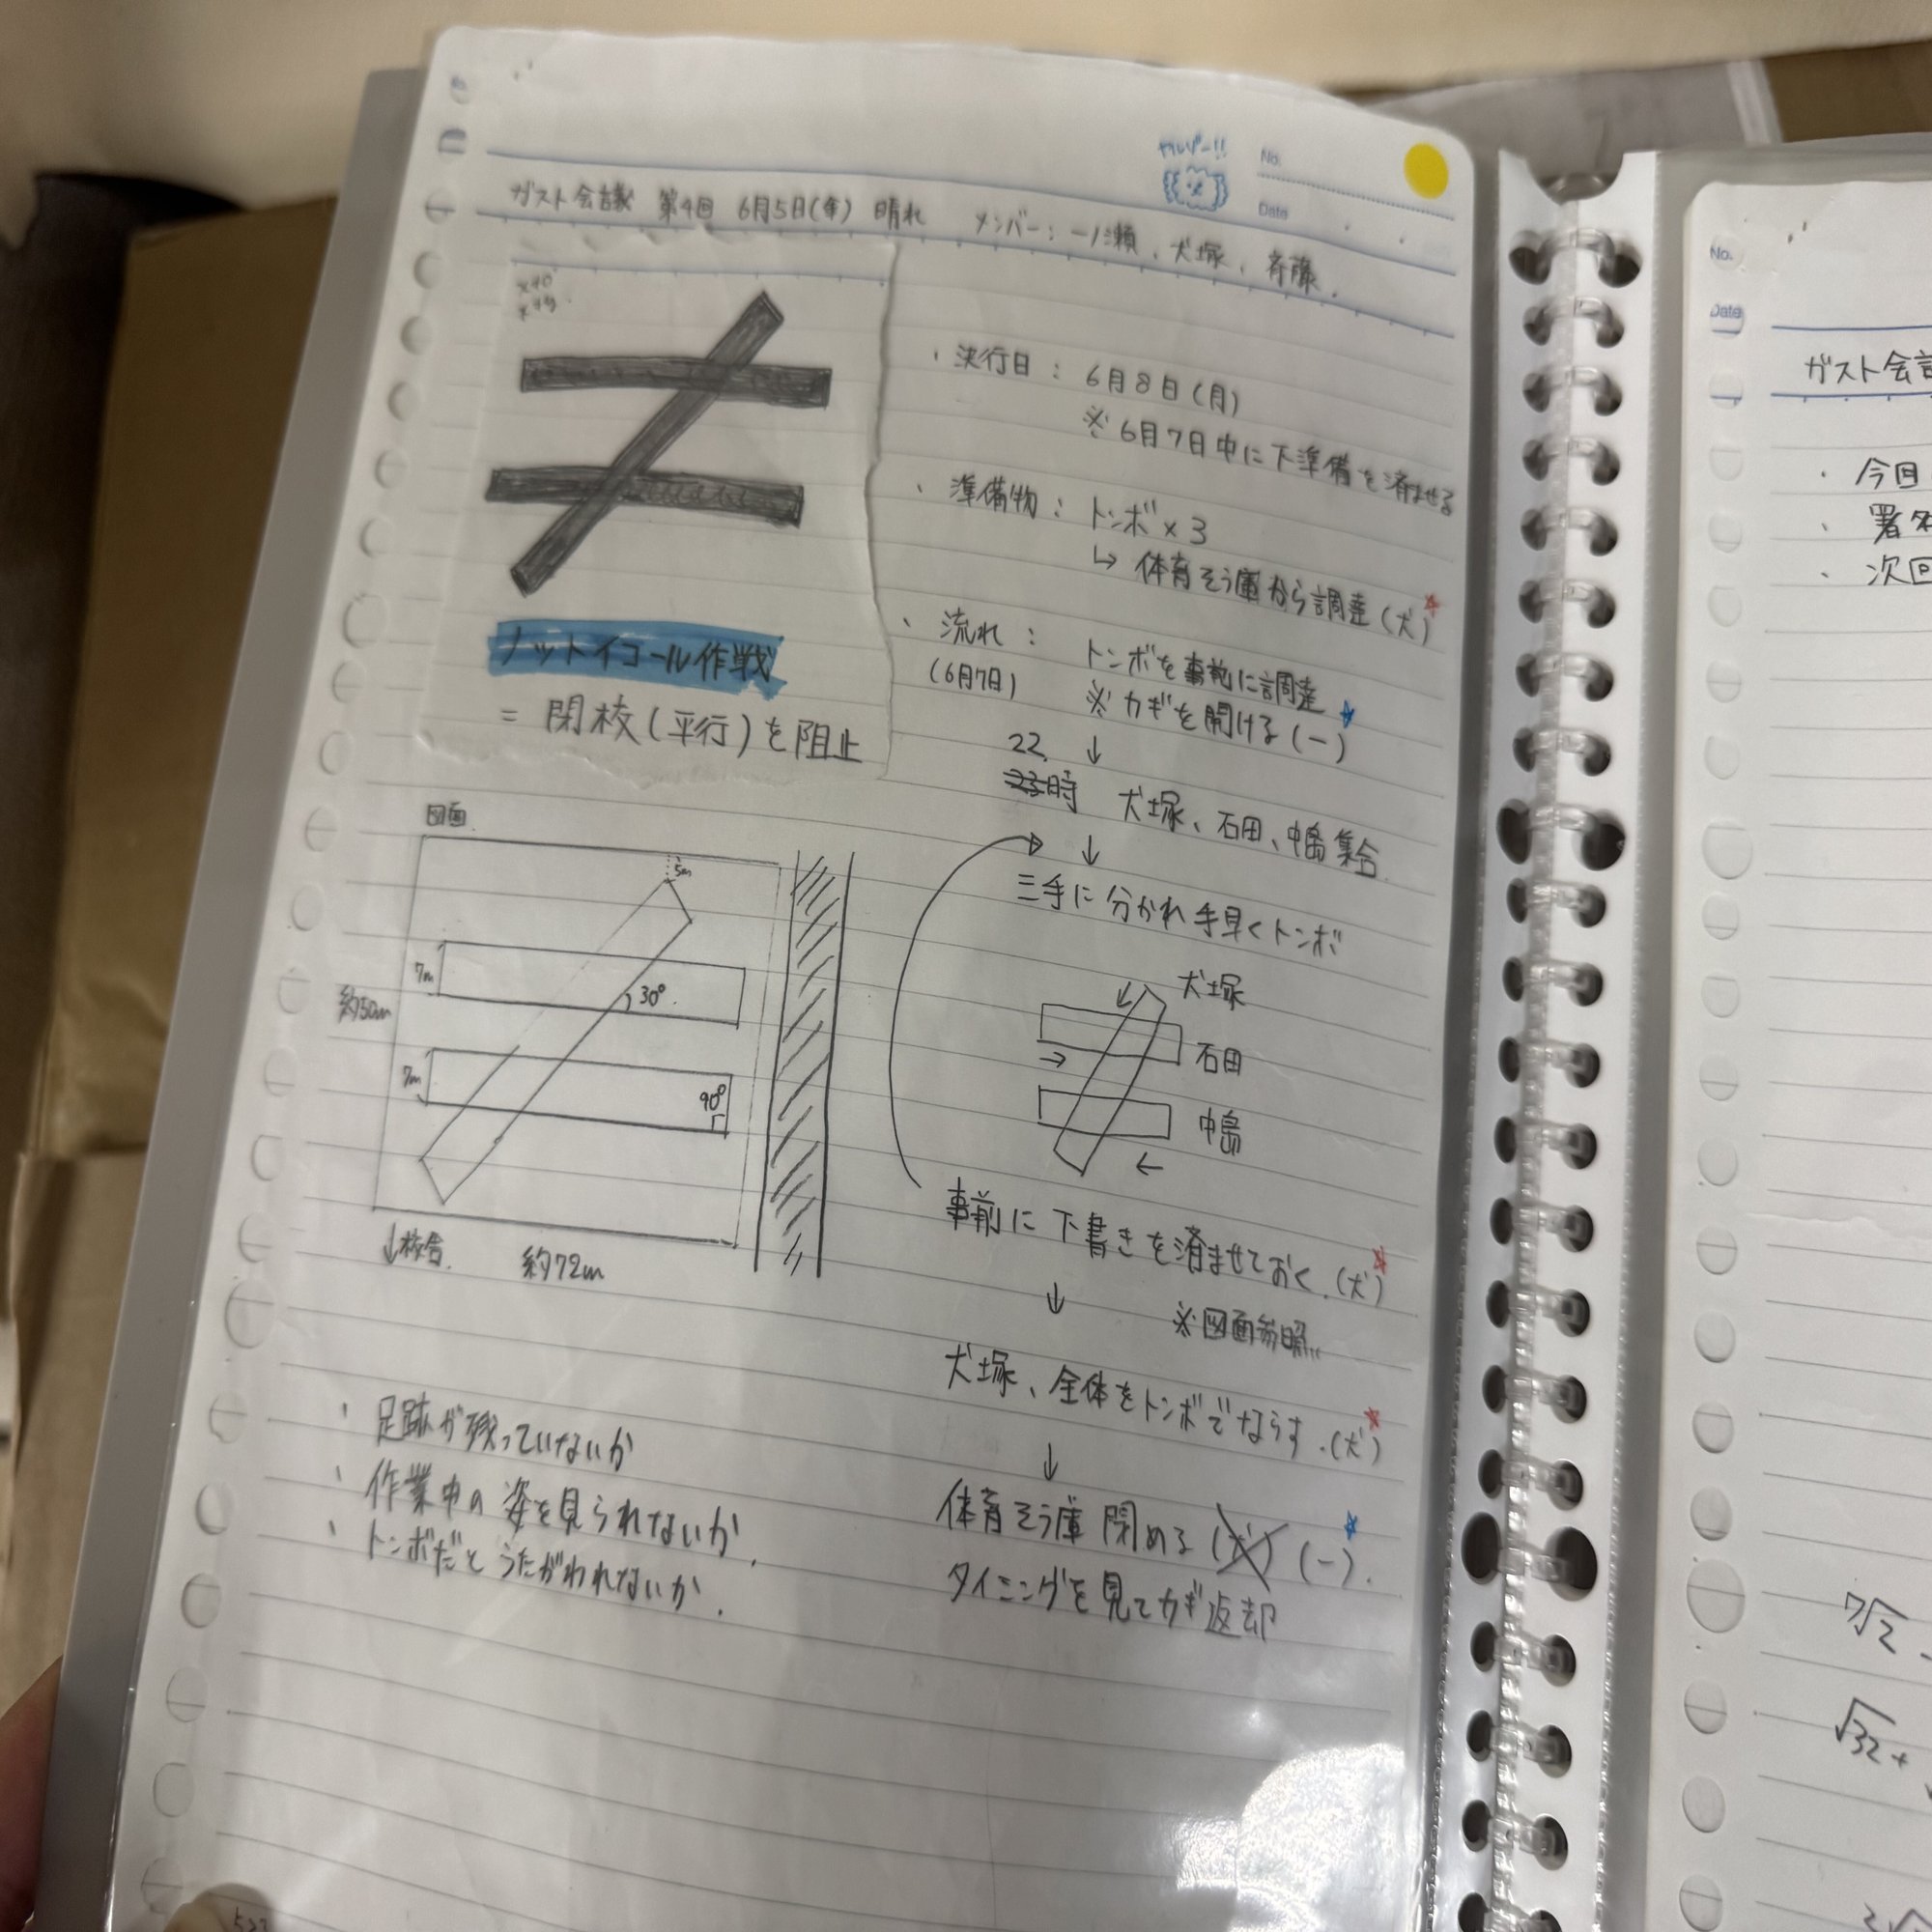 ヤルゾー!!
No.
Date
ガスト会議 第4回 6月5日(金) 晴れ メンバー:一ノ瀬、犬塚、斉藤.
ノットイコール作戦
= 閉校(平行)を阻止
・決行日: 6月8日(月)
※6月7日中に下準備を済ませる
・準備物: トンボ×3
↳ 体育そう庫から調達(犬)
・流れ: トンボを事前に調達
(6月7日) ※カギを開ける(一)
↓
22
23時 犬塚、石田、中島集合
↓
三手に分かれ手早くトンボ
犬塚
石田
中島
事前に下書きを済ませておく.(犬)
↓ ※図面参照
犬塚、全体をトンボでならす.(犬)
↓
体育そう庫閉める (犬) (一).
タイミングを見てカギ返却
図面
5m
7m
30°
約50m
7m
90°
↓校舎.
約72m
・足跡が残っていないか
・作業中の姿を見られないか.
・トンボだとうたがわれないか.
No.
Date
ガスト会
・今回
・署名
・次回
7√2
√32+